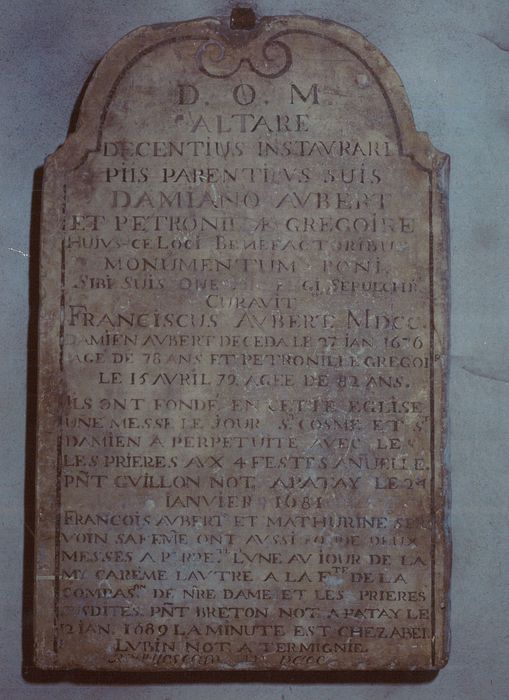 D. O. M.
ALTARE
DECENTIUS INSTAVRARI
PIIS PARENTIBVS SUIS
DAMIANO AVBERT
ET PETRONILLÆ GREGOIRE
HUIUSCE LOCI BENEFACTORIBUS
MONUMENTUM PONI.
SIBI SUIS QUE ELIGI SEPULCHR
CURAVIT
FRANCISCUS AVBERT MDCC.
DAMIEN AVBERT DECEDA LE 27 IAN 1676
AGE DE 78 ANS ET PETRONILLE GREGOIR
LE 15 AVRIL 79 AGEE DE 82 ANS.
ILS ONT FONDÉ EN CETTE EGLISE
UNE MESSE LE JOUR St COSME ET St
DAMIEN A PERPETUITE AVEC LES
LES PRIERES AUX 4 FESTES ANUELLE.
PÑT GUILLON NOT. APATAY LE
IANVIER 1681
FRANCOIS AVBERT ET MATHURINE SE
VOIN SA FEME ONT AUSSI FONDE DEUX
MESSES A PERPE.TE L'UNE AU IOUR DE LA
MY CARÊME LAUTRE A LA FTE DE LA
COMPAS.ON DE NRE DAME ET LES PRIERES
SUSDITES. PÑT BRETON NOT. APATAY LE
12 IAN. 1689 LA MINUTE EST CHEZ ABEL
LUBIN NOT A TERMIGNIE